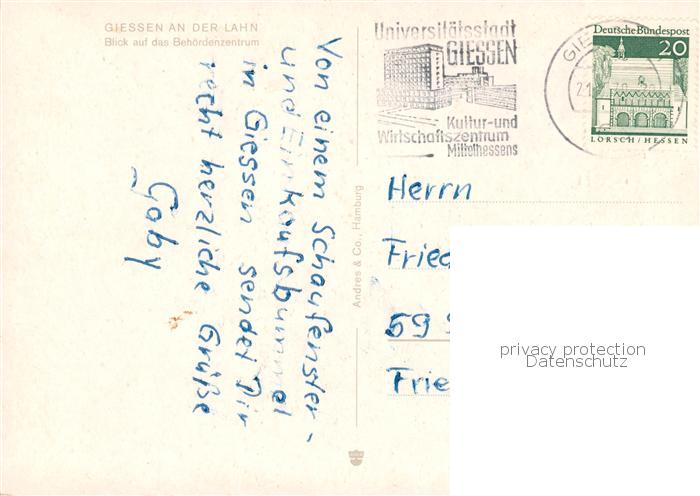 GIESSEN AN DER LAHN
Blick auf das Behördenzentrum
Von einem Schaufenster-
und Einkaufsbummel
in Giessen sendet Dir
recht herzliche Grüße
Gaby
Andres & Co., Hamburg
Universitätsstadt
GIESSEN
Kultur-und
Wirtschaftszentrum
Mittelhessens
Deutsche Bundespost
20
LORSCH/HESSEN
Herrn
59
privacy protection
Datenschutz